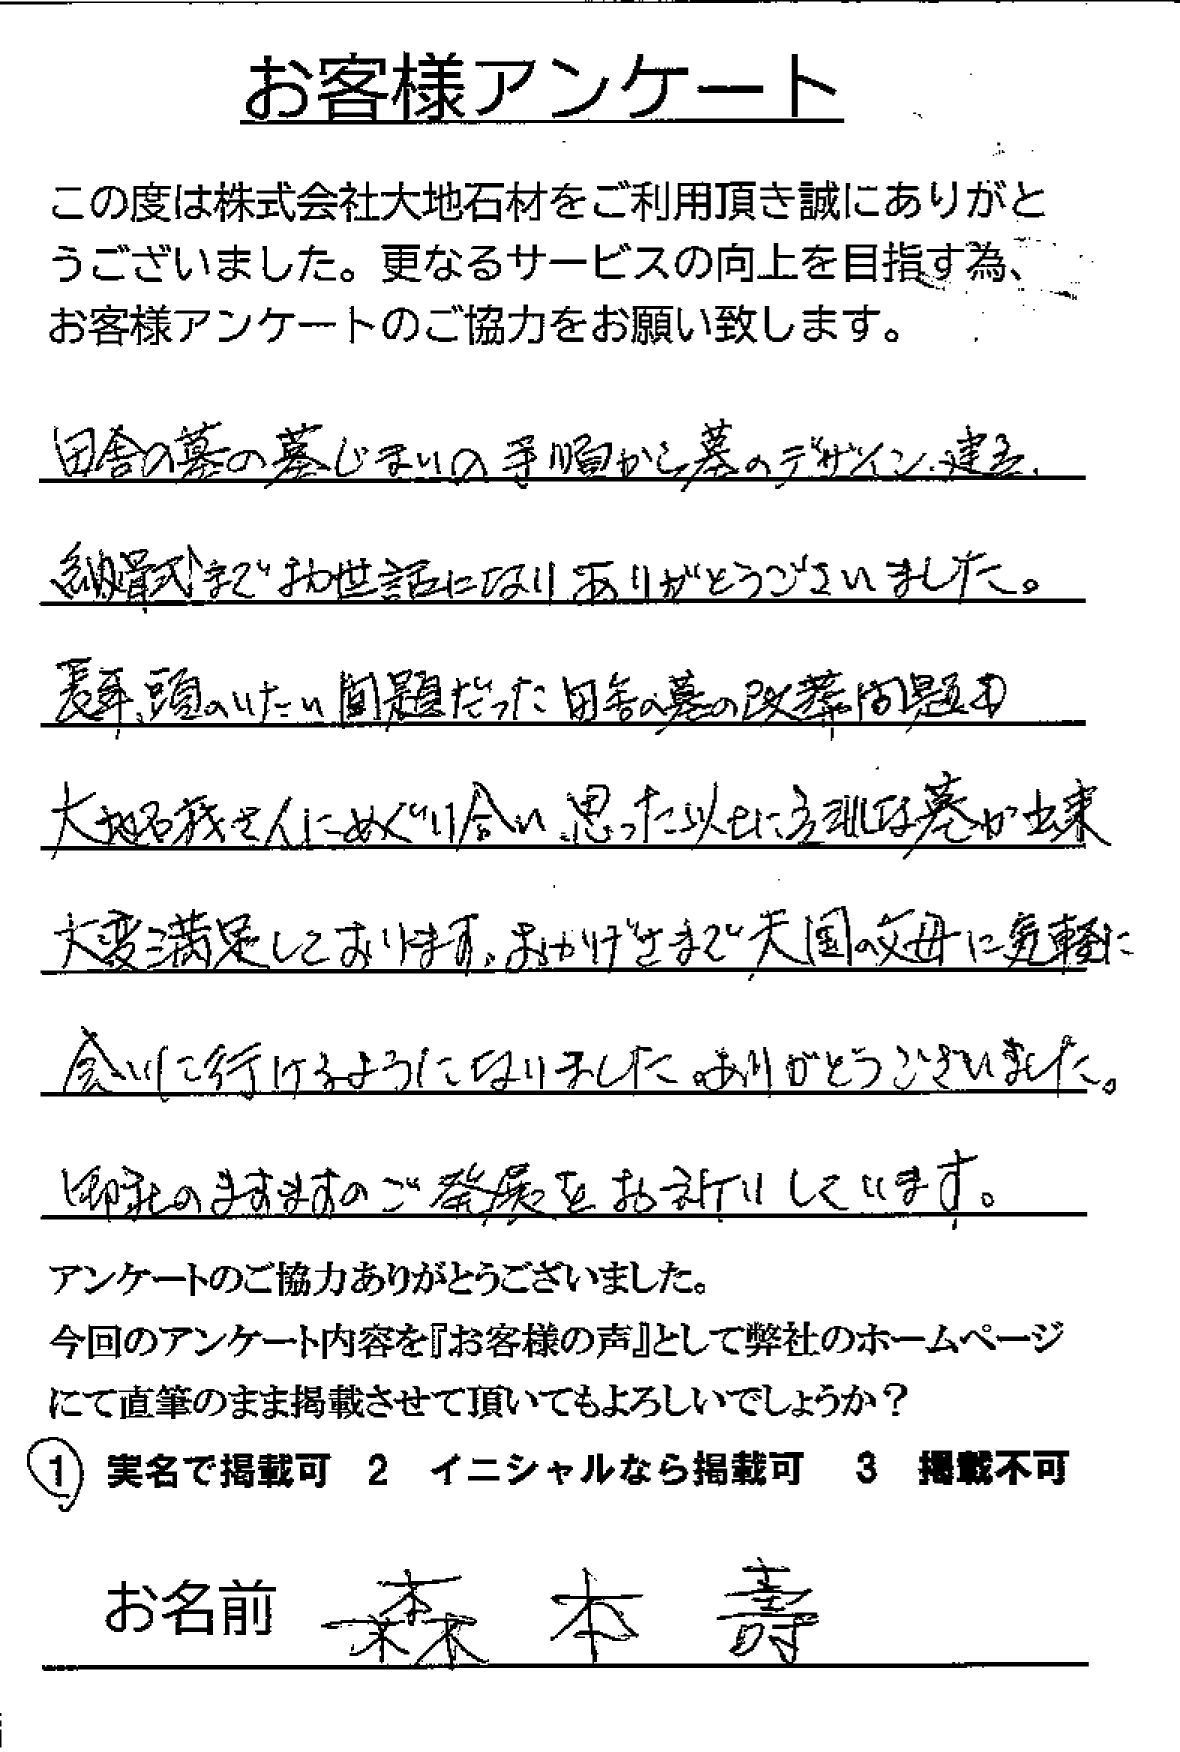 お客様アンケート
この度は株式会社大地石材をご利用頂き誠にありがと
うございました。更なるサービスの向上を目指す為、
お客様アンケートのご協力をお願い致します。
田舎の墓の墓じまいの手順から墓のデザイン、建立、
納骨式までお世話になりありがとうございました。
長年、頭のいたい問題だった田舎の墓の改葬問題も
大地石材さんにめぐり合い、思った以上に立派な墓が出来
大変満足しております。おかげさまで天国の父母に気軽に
会いに行けるようになりました。ありがとうございました。
御社のますますのご発展をお祈りしています。
アンケートのご協力ありがとうございました。
今回のアンケート内容を『お客様の声』として弊社のホームページ
にて直筆のまま掲載させて頂いてもよろしいでしょうか？
1 実名で掲載可 2 イニシャルなら掲載可 3 掲載不可
お名前 森本壽